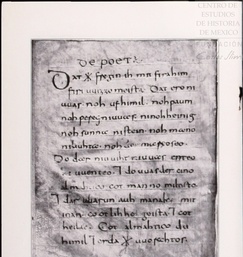 CENTRO DE
ESTUDIOS
DE HISTORIA
DE MEXICO
De poeta
Dat fregin ih mit firahim
firi uuizzo meista Dat ero ni
uuas noh ufhimil noh paum
noh pereg ni uuas ninohheinig
noh sunna nistein noh mano
niliuhta noh der mareo seo
Do dar niuuiht niuuas enteo
ni uuenteo do uuas der eino
almahtico cot manno miltisto
dar uuarun auh manake mit
inan cootlihhe geista cot
heilac Cot almahtico du
himil erda